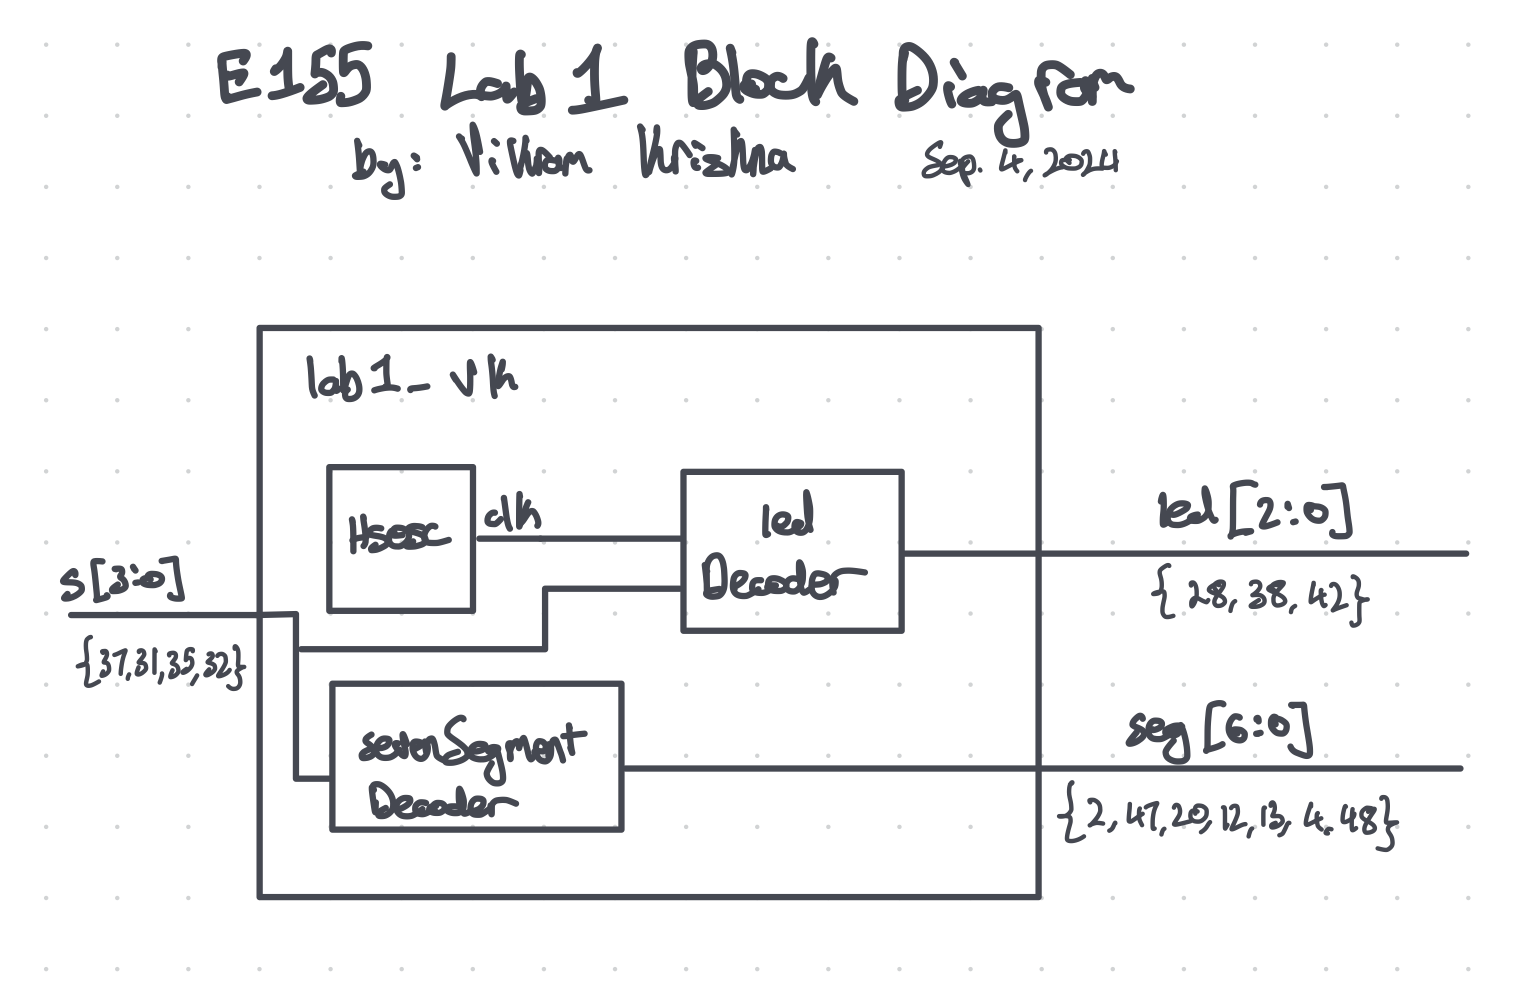 E155 Lab 1 Block Diagram
by: Vikram Krishna Sep. 4, 2024
lab1_vk
Hsosc
clk
led
Decoder
led [2:0]
{28, 38, 42}
s[3:0]
{37,31,35,32}
sevenSegment
Decoder
seg [6:0]
{2, 47, 20, 12, 13, 4, 48}